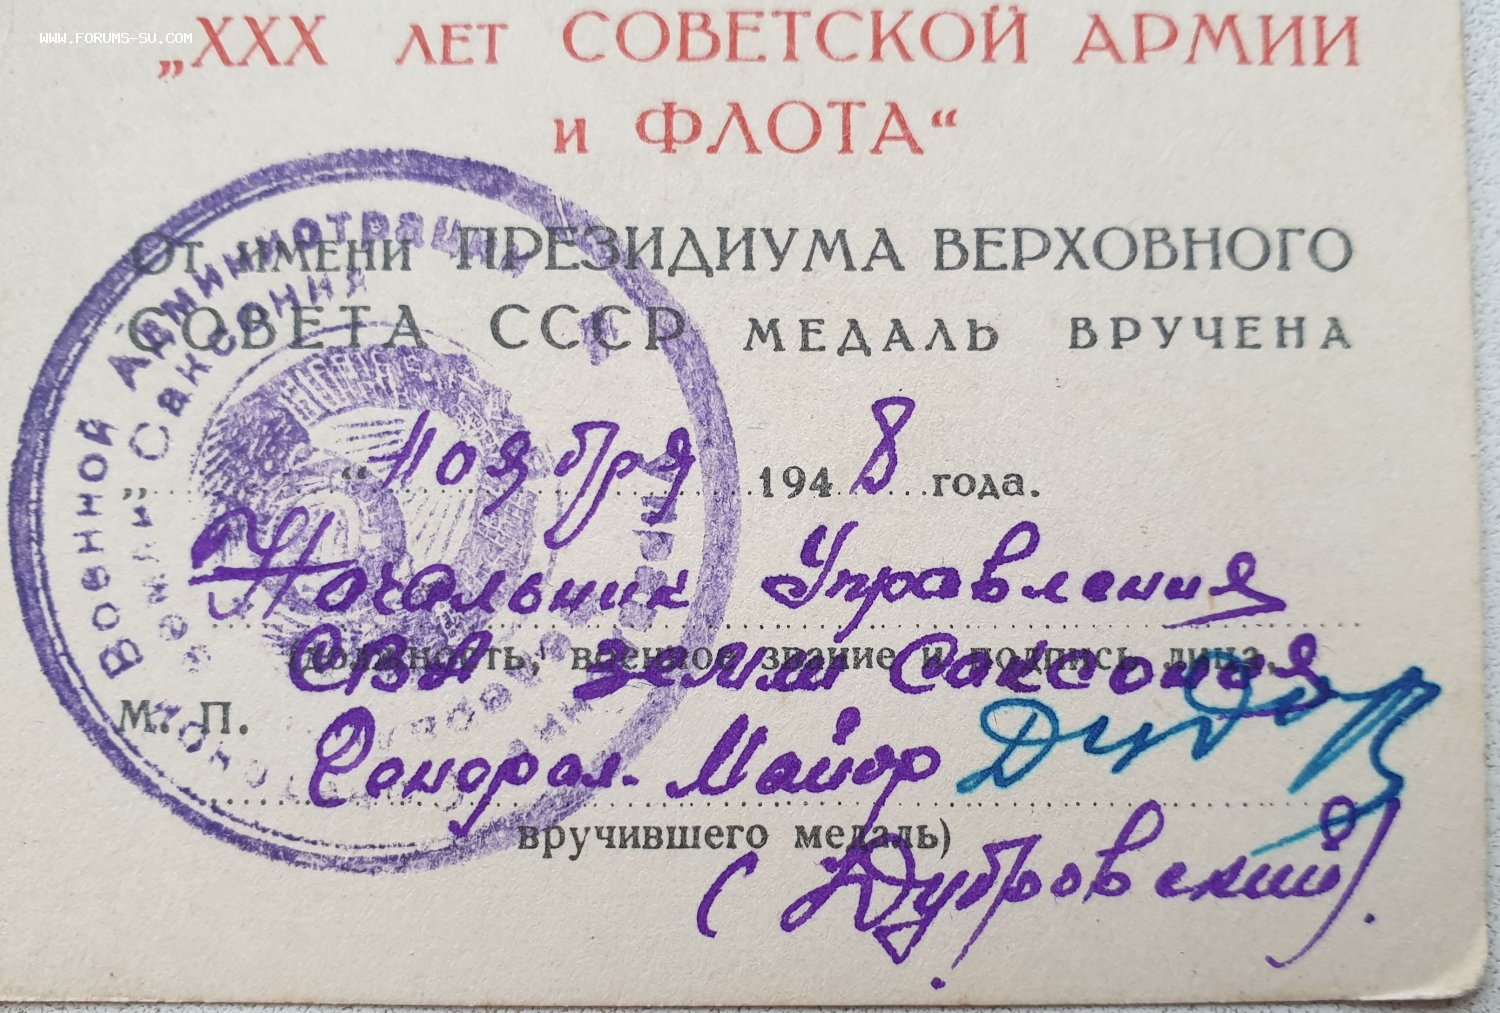 www.forums-su.com
„XXX лет СОВЕТСКОЙ АРМИИ
и ФЛОТА“
От имени ПРЕЗИДИУМА ВЕРХОВНОГО
СОВЕТА СССР МЕДАЛЬ ВРУЧЕНА
„ “ ноября 1948 года.
Начальник Управления
(должность, военное звание и подпись лица,
СВА земли Саксония
М. П.
Генерал-Майор
вручившего медаль)
(Дубровский).
Военной Администрации
земли Саксония